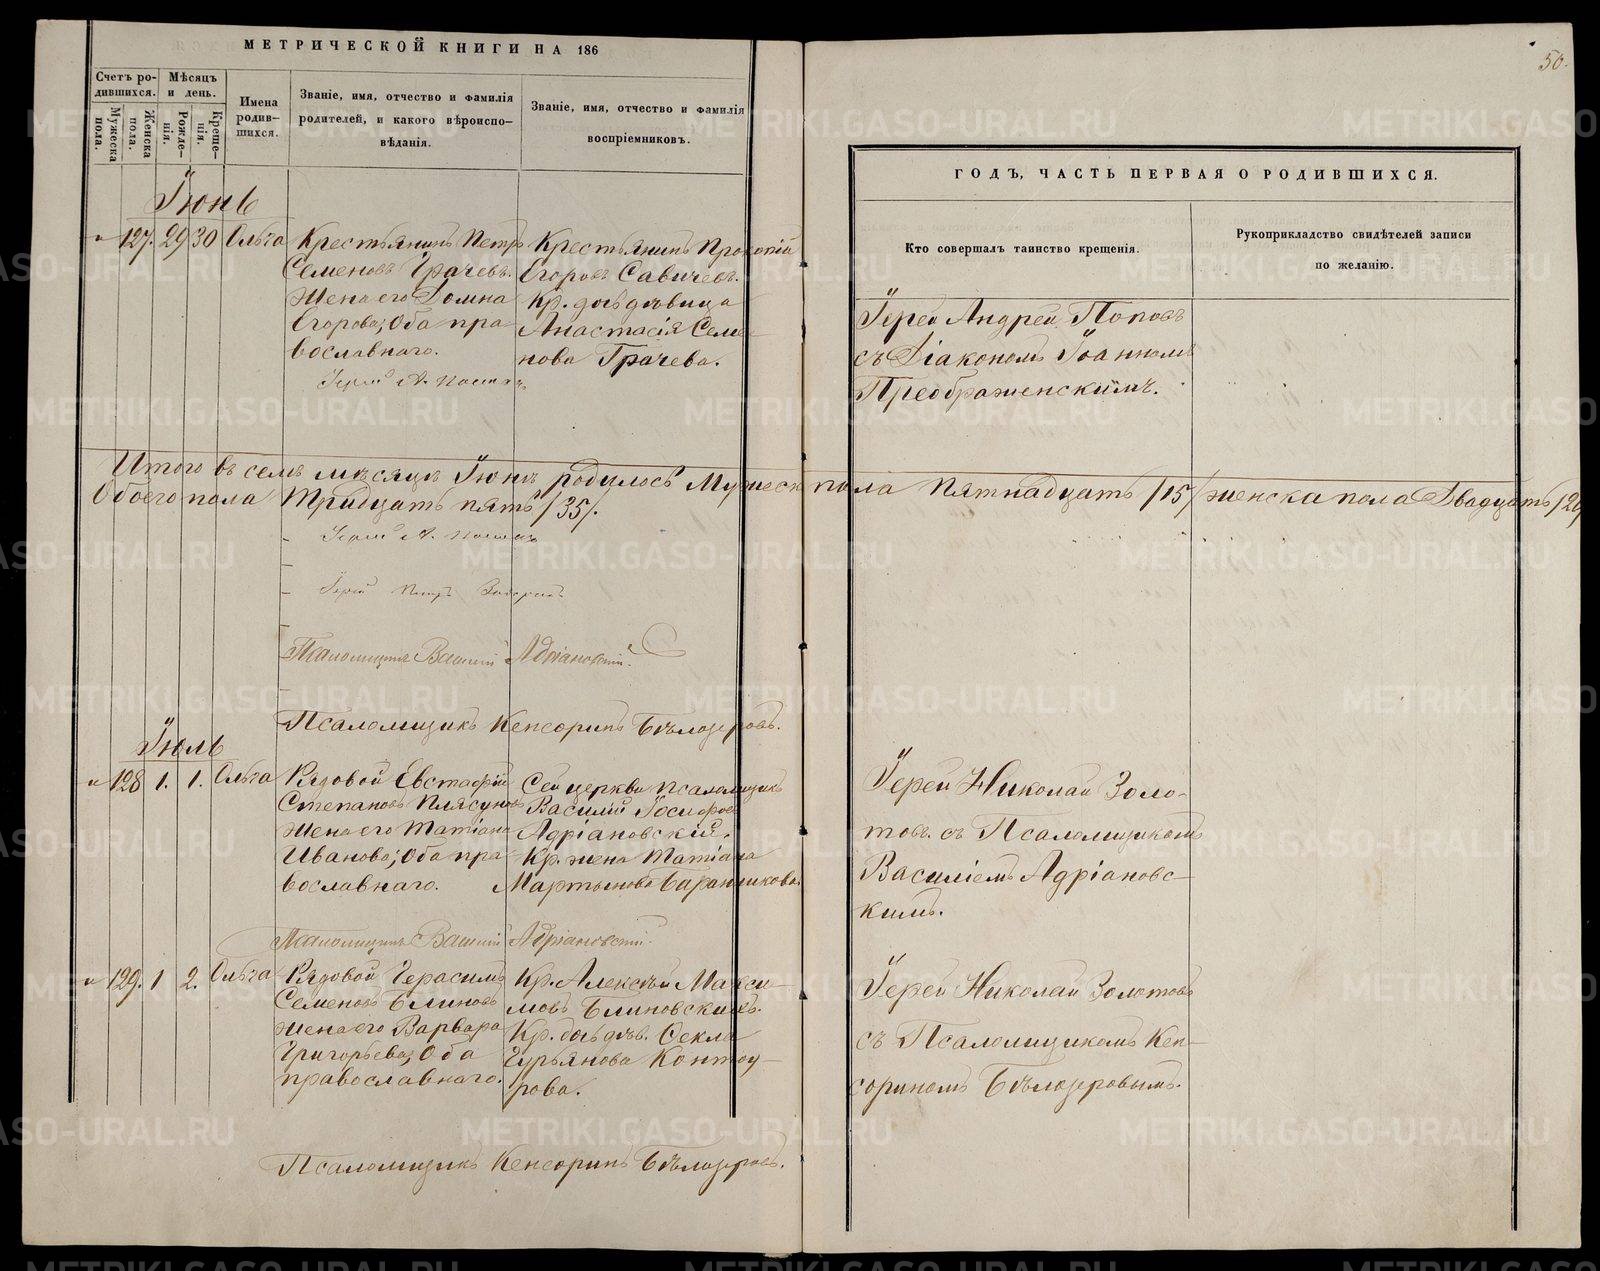 МЕТРИЧЕСКОЙ КНИГИ НА 186
Счетъ ро-
дившихся.
Мужеска
пола.
Женска
пола.
Мѣсяцъ
и день.
Рожде-
нія.
Креще-
нія.
Имена
родив-
шихся.
Званіе, имя, отчество и фамилія
родителей, и какого вѣроиспо-
вѣданія.
Званіе, имя, отчество и фамилія
воспріемниковъ.
Іюнь
" 127. 29 30 Ольга
Крестьянинъ Петръ
Семеновъ Грачевъ.
жена его Домна
Егорова; Оба пра-
вославнаго.
Крестьянинъ Прокопій
Егоровъ Савичевъ.
Кр. дочь дѣвица
Анастасія Семе-
нова Грачева.
Іерей А. Поповъ
Итого въ семъ мѣсяцѣ Іюнѣ родилось Мужеска пола Пятнадцать /15/ женска пола Двадцать /20/
Обоего пола Тридцать пять /35/.
Іерей А. Поповъ
Іерей
Псаломщикъ Василій Адріановскій.
Псаломщикъ Кенсоринъ Бѣлозеровъ.
Іюль
" 128 1. 1. Ольга
Рядовой Евстафій
Степановъ Плясуновъ
жена его Татіана
Иванова; Оба пра-
вославнаго.
Сей церкви псаломщикъ
Василій Іосифовъ
Адріановскій.
Кр. жена Татіана
Мартынова Баранникова.
Псаломщикъ Василій Адріановскій.
" 129. 1 2. Ольга
Рядовой Герасимъ
Семеновъ Блиновъ
жена его Варвара
Григорьева; Оба
православнаго.
Кр. Алексѣй Макси-
мовъ Блиновскихъ.
Кр. дочь дѣв. Ѳекла
Гурьянова Контоу-
рова.
Псаломщикъ Кенсоринъ Бѣлозеровъ.
50.
ГОДЪ, ЧАСТЬ ПЕРВАЯ О РОДИВШИХСЯ.
Кто совершалъ таинство крещенія.
Рукоприкладство свидѣтелей записи
по желанію.
Іерей Андрей Поповъ
съ Діакономъ Іоанномъ
Преображенскимъ.
Іерей Николай Золо-
товъ съ Псаломщикомъ
Василіемъ Адріановс-
кимъ.
Іерей Николай Золотовъ
съ Псаломщикомъ Кен-
сориномъ Бѣлозеровымъ.
METRIKI.GASO-URAL.RU